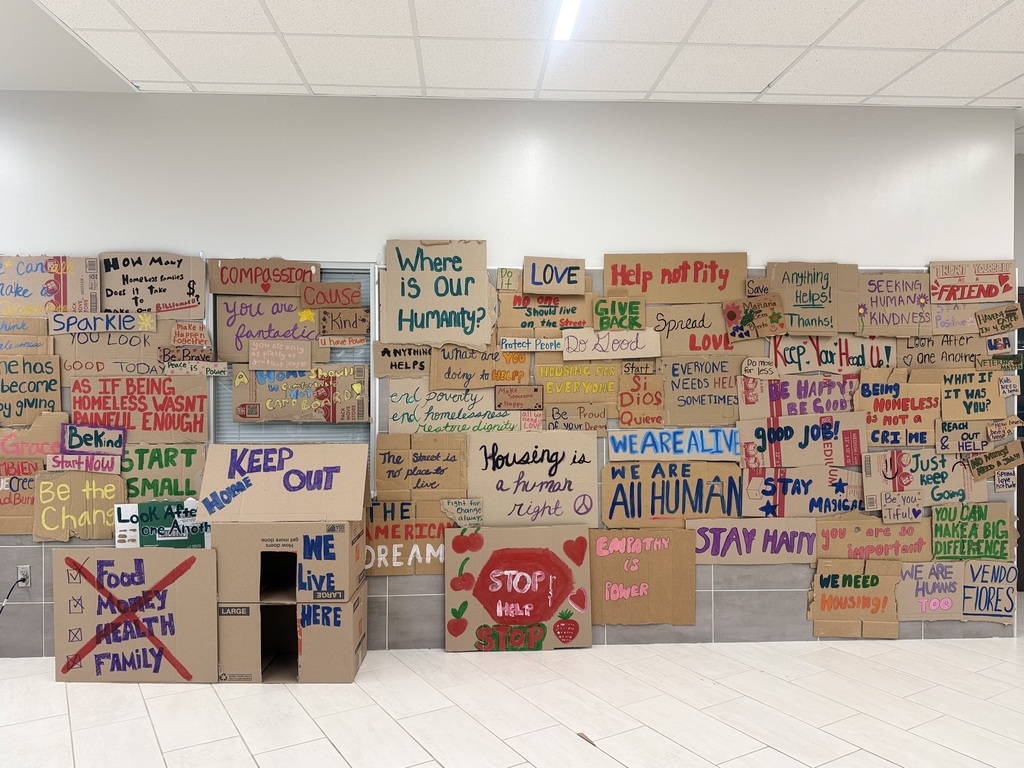 HOW MANY
HomeLess Families
Does it TAKE
TO
Billionare?
$
COMPASSION
you are
fantastic
Cause
Kind
U have Power
Sparkle
YOU LOOK
GOOD TODAY
Make it
Happen
Together
Be Brave
Peace is Power
he has
become
by giving
AS IF BEING
HOMELESS WASN'T
PAINFUL ENOUGH
Grace
BeKind
Start NOW
START
SMALL
Be the
Change
Look After
one Another
KEEP
OUT
HOME
WE
LIVE
HERE
LARGE
LARGE
Food
Money
HEALTH
FAMILY
Where
is Our
Humanity?
Do
LOVE
NO ONE
Should live
on the Street
GIVE
BACK
Help not Pity
Save
Anything
Helps!
Thanks!
SEEKING
HUMAN
KINDNESS
FRIEND
ANYTHING
HELPS
What are YOU
doing to HELP?
Protect People
Do Good
Spread
LOVE
HOUSING FOR
EVERYONE
Start
Si
Dios
Quiere
EVERYONE
NEEDS HELP
SOMETIMES
Do more
for less
Keep Your Head U!
Look After
one Another
USA
VETERAN
end poverty
end homelessness
restore dignity
Make
Someone
Happy
Be Proud
of Your Dream
BE HAPPY!
BE GOOD!
BEING
HOMELESS
IS NOT A
CRIME
WHAT IF
IT WAS
YOU?
REACH
& OUT
HELP
The Street is
no place to
live
Housing is
a human
right
WE ARE ALIVE
WE ARE
All HUMAN
good JOB!
STAY
MAGICAL
JUST
Keep
Going
Be-you-
Tiful
YOU CAN
MAKE A BIG
DIFFERENCE
THE
AMERICAN
DREAM
Fight for
Change
always
STOP
HELP
STOP
EMPATHY
IS
POWER
STAY HAPPY
you are so
important
WE NEED
HOUSING!
WE ARE
HUMANS
TOO
VENDO
FLORES